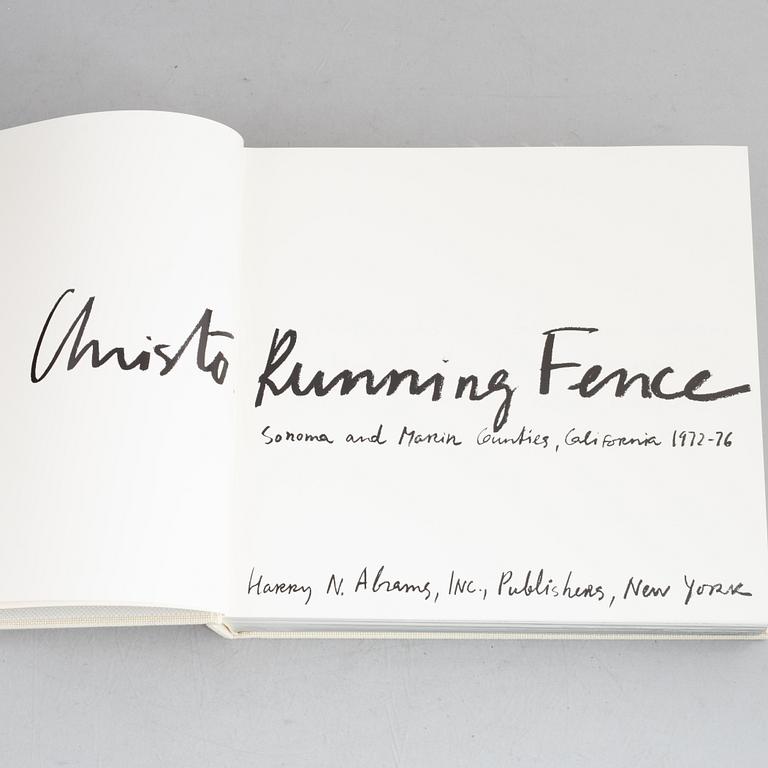 Christo Running Fence
Sonoma and Marin Counties, California 1972-76
Harry N. Abrams, Inc., Publishers, New York